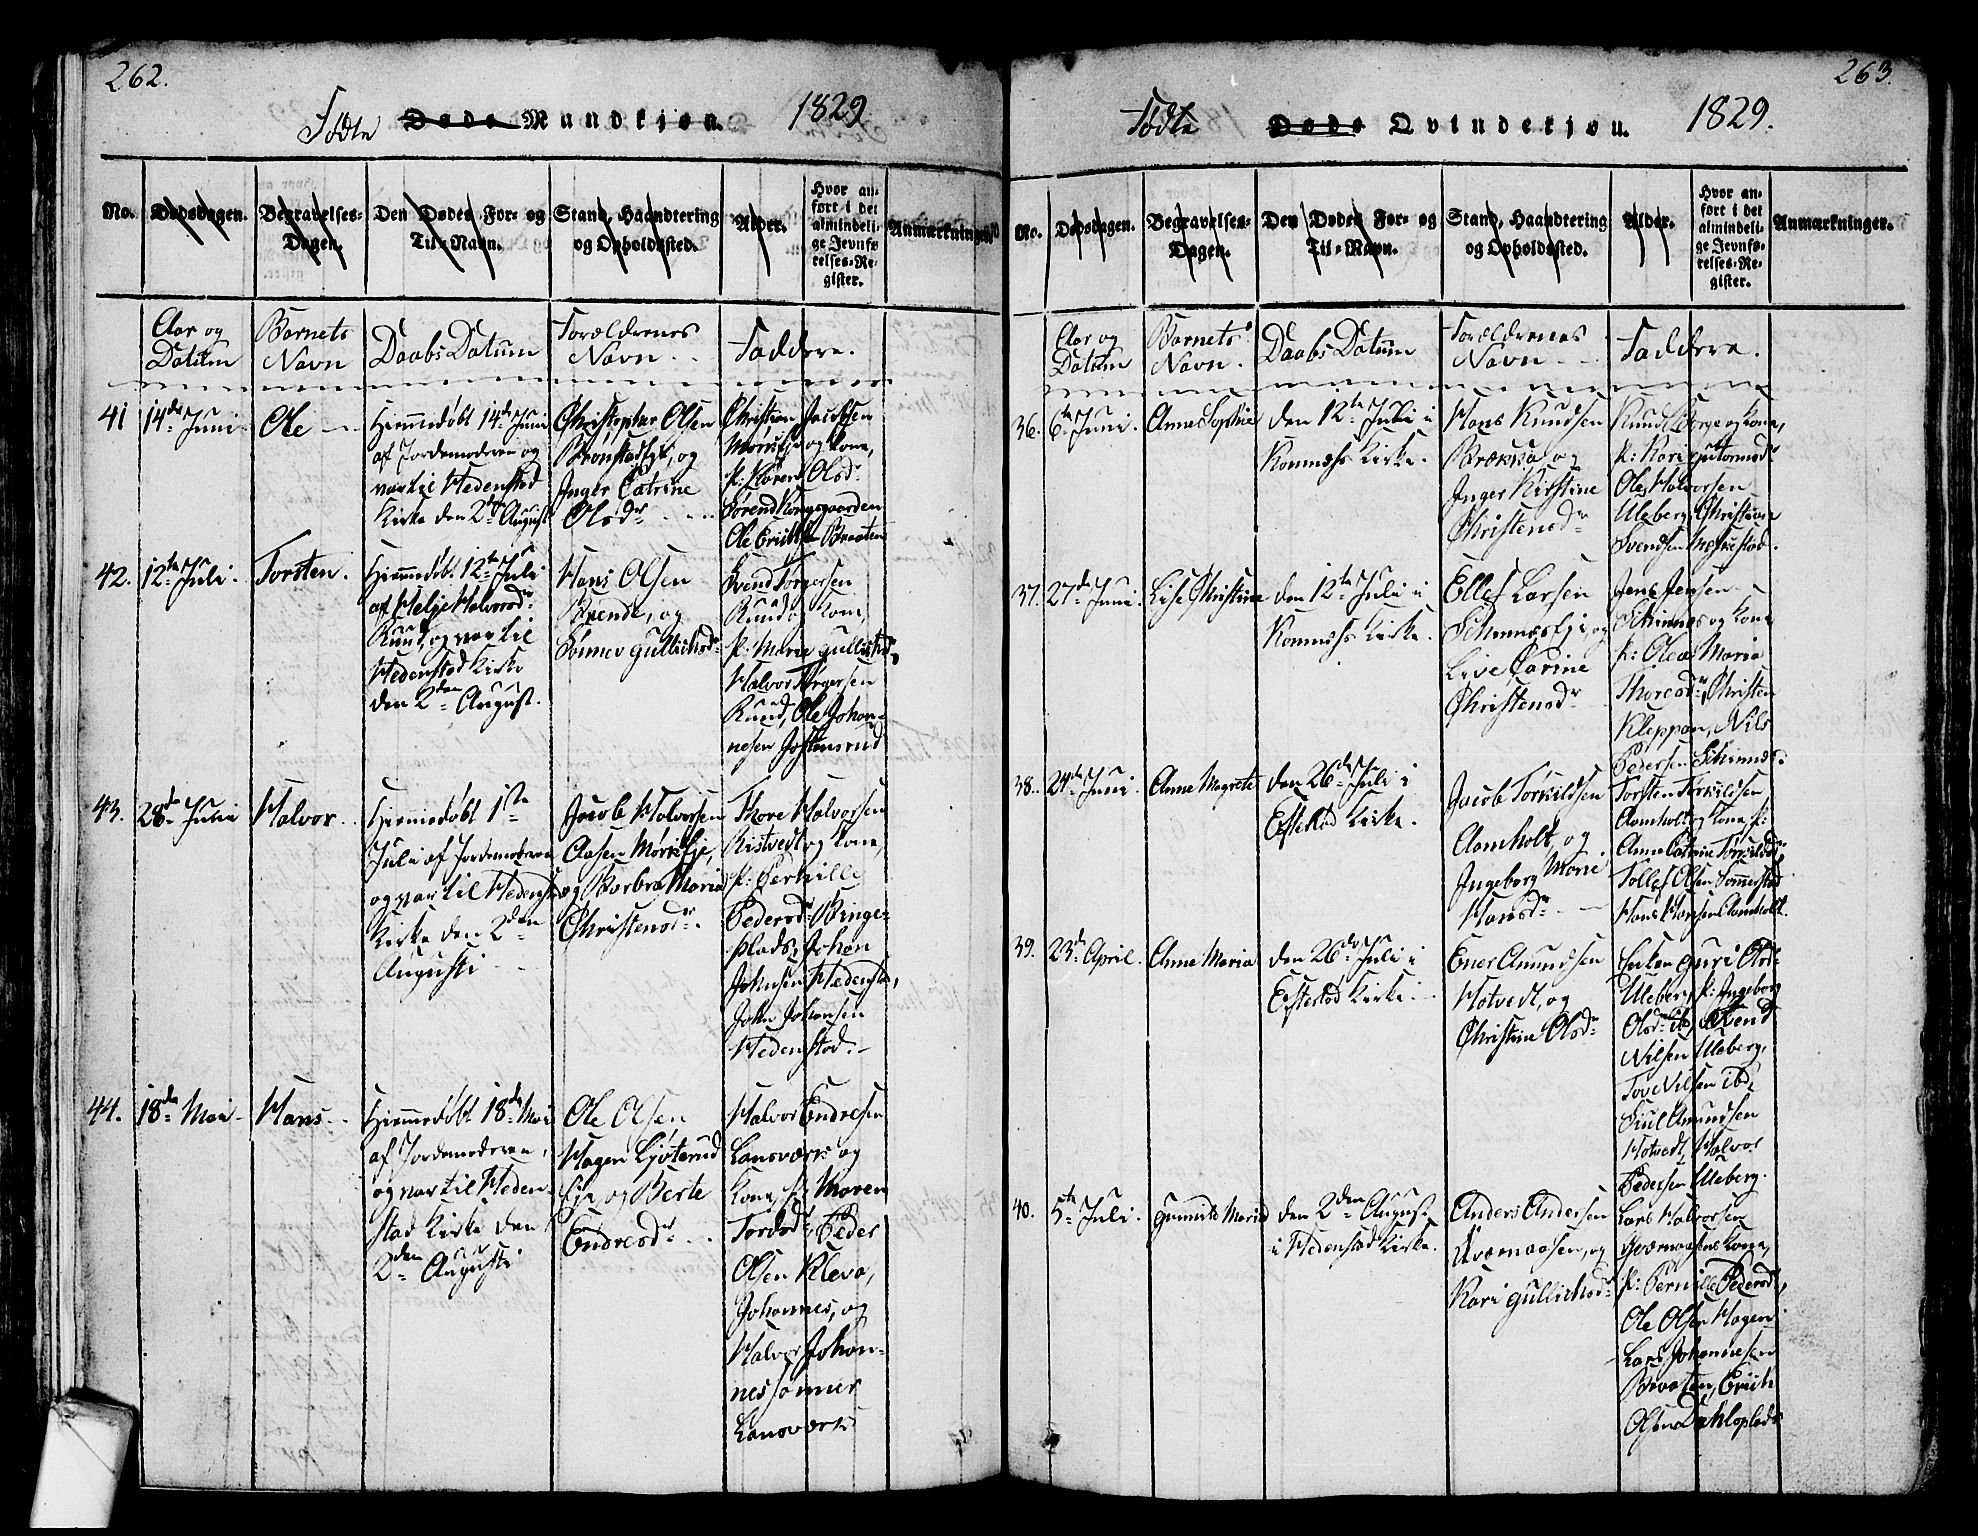 262.
Fødte Døde Mandkjøn. 1829.
No.
Dødsdagen.
Begravelses-
Dagen.
Den Dødes For- og
Til-Navn.
Stand, Haandtering
og Opholdssted.
Alder.
Hvor an-
ført i det
almindeli-
ge Jevnfø-
relses-Re-
gister.
Anmærkninger.
Aar og
Datum
Barnets
Navn
Daabs Datum
Forældrenes
Navn
Faddere.
41
14de Juni
Ole
Hiemmedøbt 14de Juni
af Jordemoderen og
var til Hedenstad
Kirke den 2den August
Christopher Olsen
og
Inger Catrine
Olsdr
Christian Jacobsen
og Kone,
p: Karen Olsd:
Ole Erichsen Braaten
42.
12te Juli.
Torsten.
Hiemmedøbt 12te Juli
af Helje Halvorsdr
Ruud, og var til
Hedenstad Kirke
den 2den August.
Hans Olsen
Brende, og
Gullichsdr
Svend Torgersen
Ruud og Kone,
p: Marie Gullichsd,
Halvor Torgersen
Ruud, Ole Johan-
nesen Jostensrud
43.
28de Julii
Halvor.
Hiemmedøbt 1ste
Juli af Jordemoderen
og var til Hedenst:
Kirke den 2den
Augusti
Jacob Halvorsen
Aasen
og Barbra Maria
Christensdr.
Thore Halvorsen
Ristvedt og Kone,
p: Pernille
Pedersdr Binge-
plads, Johan
Johnsen Hedensta,
John Johansen
Hedenstad.
44.
18de Mai
Hans
Hiemmedøbt 18de Mai
af Jordemoderen,
og var til Heden-
stad Kirke den
2den Augusti
Ole Olsen
Hagen Ljøterud
Eje og Berte
Endresdr
Halvor Endresen
Lansværk og
Kone, p: Maren
Tordsdr, Peder
Olsen Kleva,
Johannes, og
Halvor Johan-
nessønner
Lansværk
263.
Fødte Døde Qvindekjøn. 1829.
No.
Dødsdagen.
Begravelses-
Dagen.
Den Dødes For- og
Til-Navn.
Stand, Haandtering
og Opholdssted.
Alder.
Hvor an-
ført i det
almindeli-
ge Jevnfø-
relses-Re-
gister.
Anmærkninger.
Aar og
Datum
Barnets
Navn.
Daabs Datum
Forældrenes
Navn
Faddere.
36.
6te Juni.
Anne Sophie
den 12te Juli i
Komnæss Kirke.
Hans Knudsen
Brække og
Inger Kirstine
Christensdr
Knud Borge og Kone,
p: Kari Gutormsdr
Ole Halvorsen
Uleberg, Christian
Svendsen
37.
27de Juni.
Lise Christine
den 12te Juli i
Komnæss Kirke.
Ellef Larsen
og
Live Carine
Christensdr
Jens Jensen
Skimnes og Kone
p: Olea Maria
Thoresdr, Christen
Kleppan, Nils
Pedersen Skimnes.
38.
24de Juni.
Anne Magrete
den 26de Juli i
Eftelød Kirke.
Jacob Torkildsen
Aamholt, og
Ingeborg Marie
Hansdr
Torsten Torkildsen
Aamholt og Kone p:
Anne Catrine Torkildsdr
Tollef Olsen Sommerstad
Hans Hansen Aamholt.
39.
23de April.
Anne Maria
den 26de Juli i
Eftelød Kirke.
Ener Amundsen
Hotvedt, og
Christine Olsdr
Enken Guri Olsdr
Uleberg, p: Ingeborg
Olsdr ib, Svend
Nilsen Uleberg,
Tove Nilsen ibd,
Amundsen
Hotvedt, Halvor
Pedersen Uleberg.
40.
5te Juli.
Gunnild Maria
den 2den August
i Hedenstad Kirke.
Anders Andersen
Qværnaasen, og
Kari Gullichsdr
Lars Halvorsen
Qværnaasens Kone,
p: Pernille Pedersd,
Ole Olsen Hagen
Lars Johannesen
Braaten, Erich
Olsen Dahlsplads